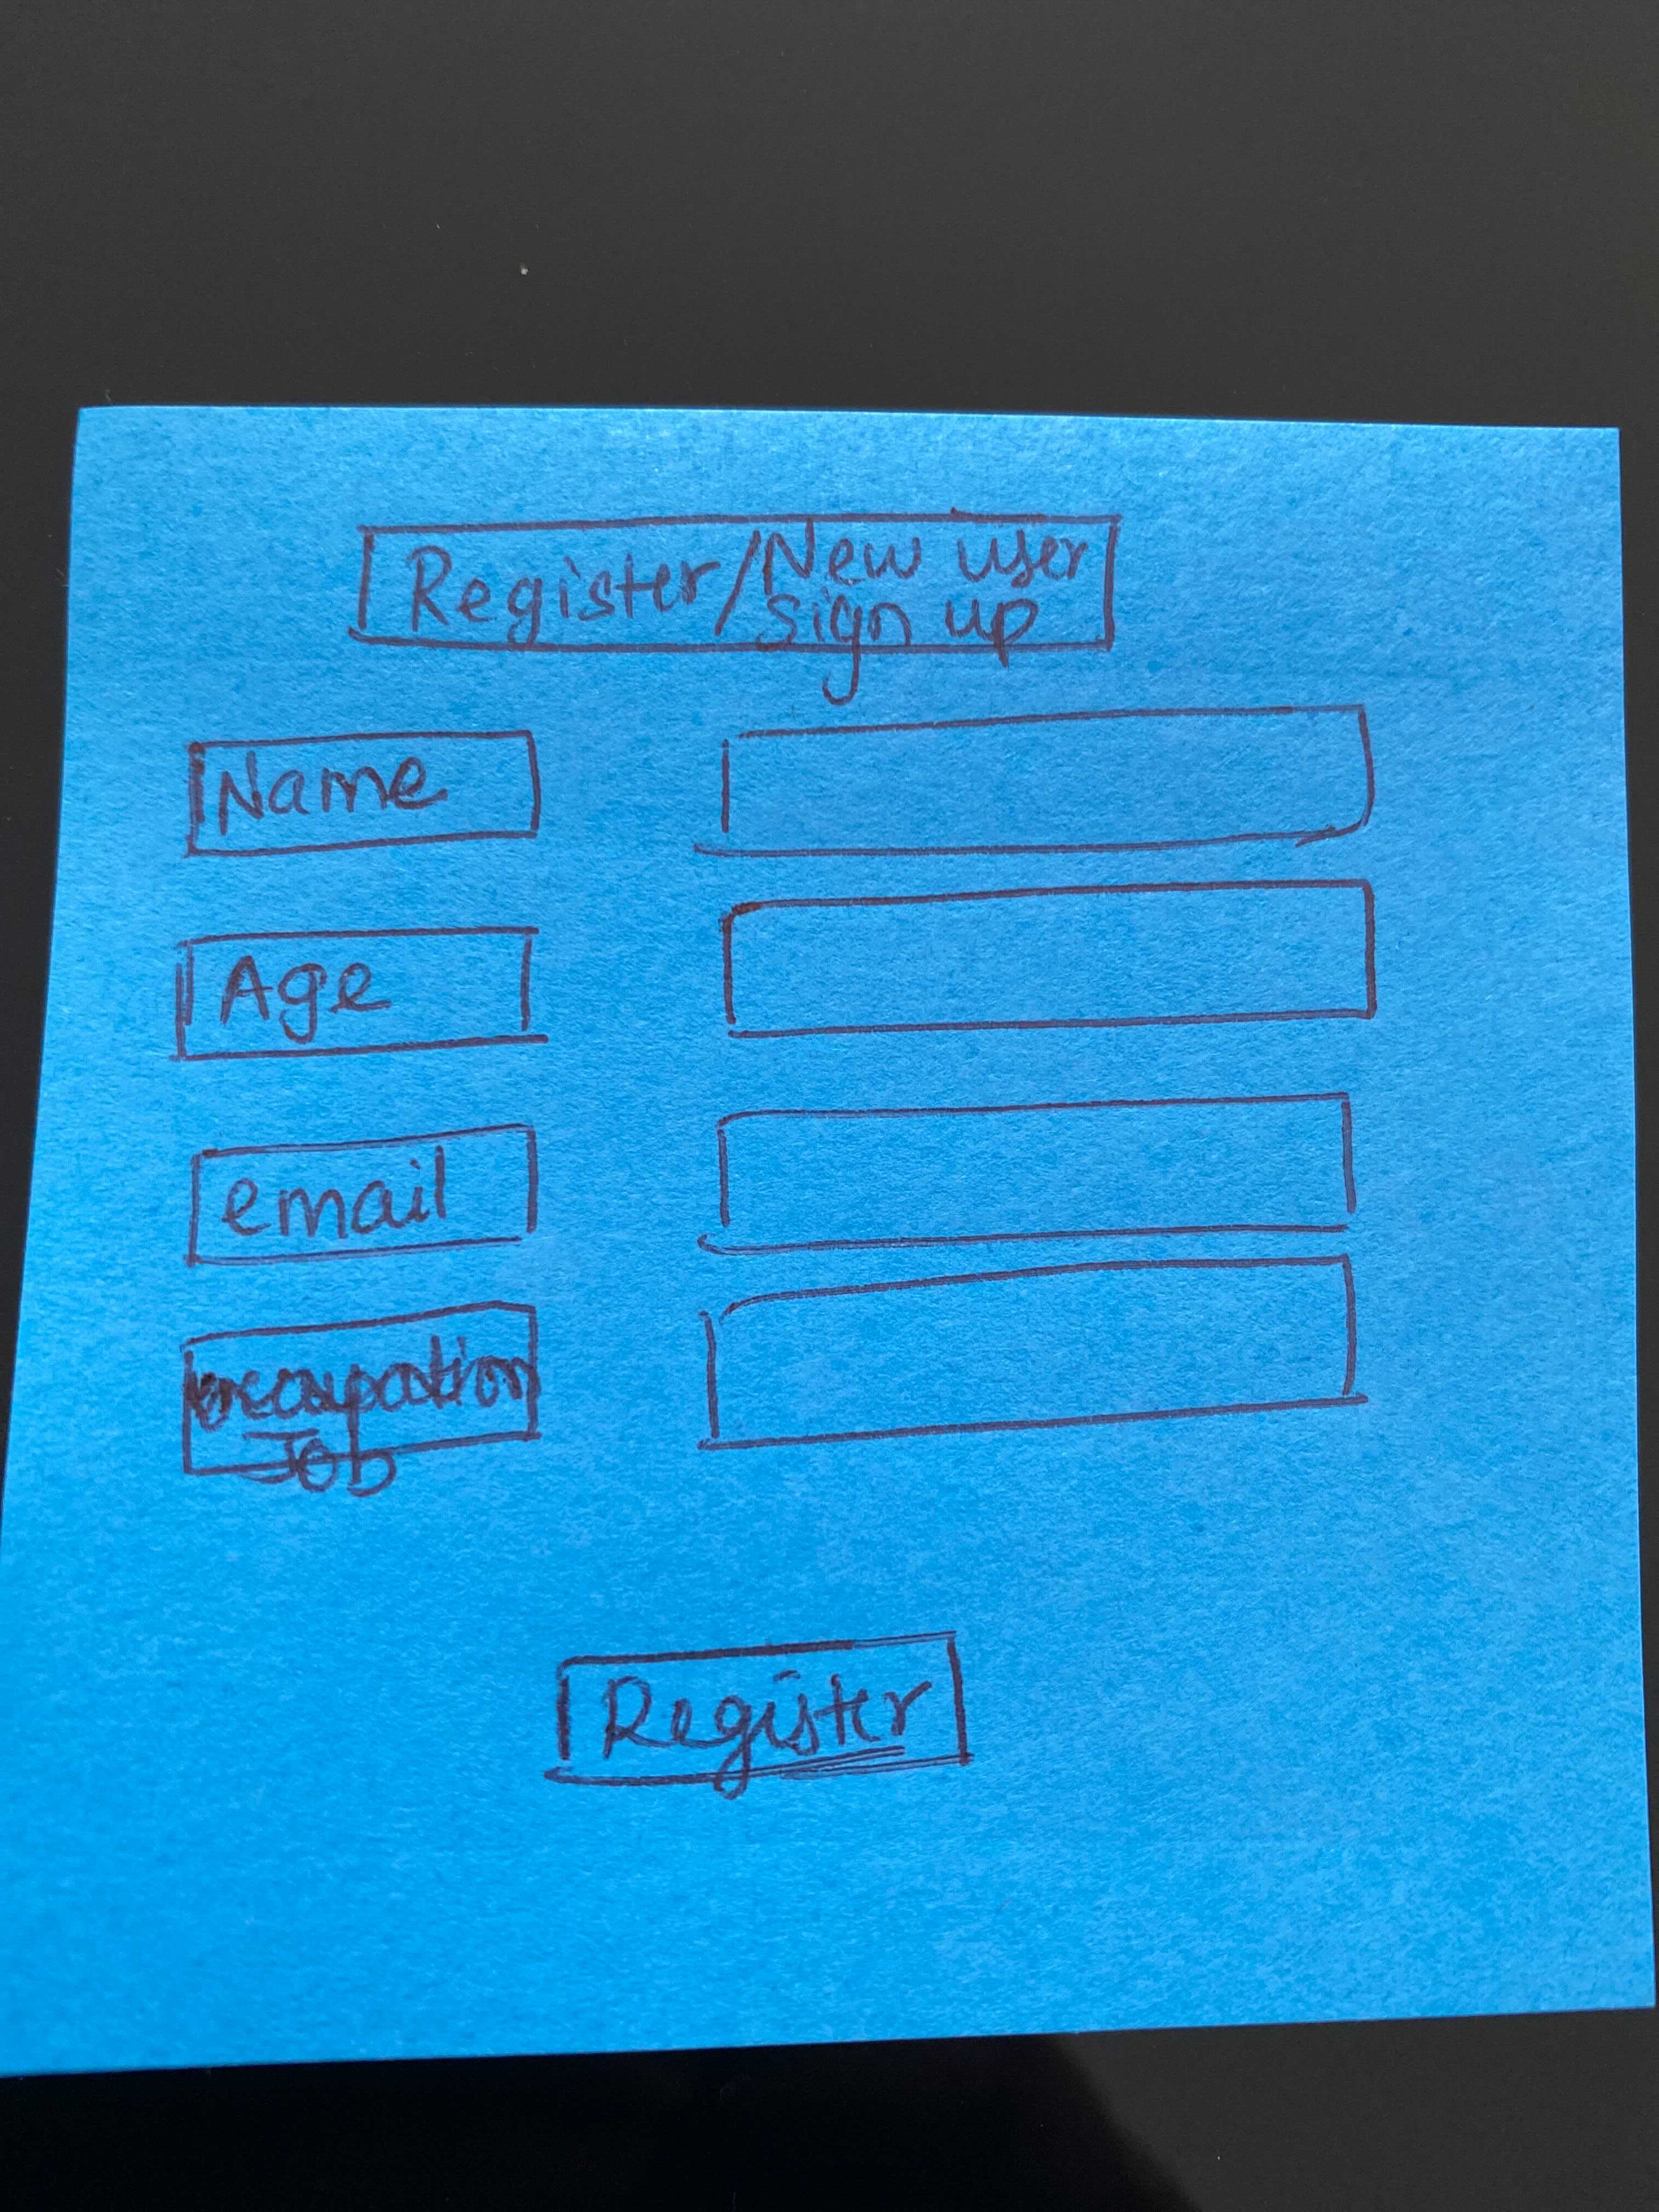 Register/New user
sign up
Name
Age
email
Job
Register